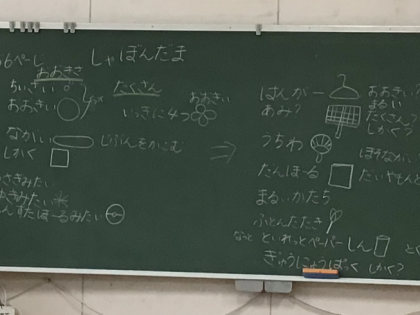 6ぺーじ
しゃぼんだま
おおきさ
ちいさい
おおきい
たくさん
いっきに4つ
おおきい
ながい
じぶんをかこむ
しかく
みたい
みたい
ぼーるみたい
はんがー
あみ?
うちわ
だんぼーる
まるいかたち
ふとんたたき
といれっとぺーパーしん
ぎゅうにゅうぱっく
しかく?
おおきい?
まるい
たくさん?
しかく?